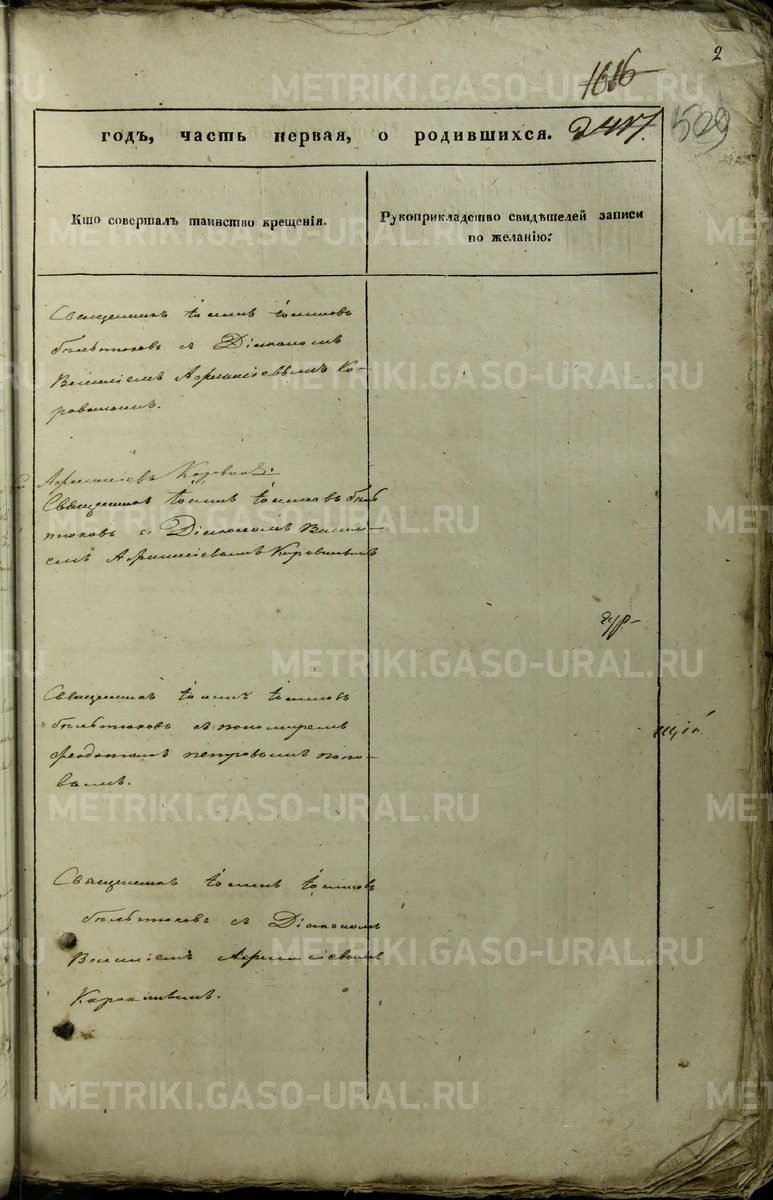 2
1616
годъ, часть первая, о родившихся. 2417.
509
Кто совершалъ таинство крещенія.
Рукоприкладство свидѣтелей записи
по желанію:
Священникъ Іоаннъ Іоанновъ
с Діакономъ
Василіемъ Афанасіевымъ Ко-
ровинымъ.
Афанасіевъ
Священникъ Іоаннъ Іоанновъ
с Діакономъ Васил-
емъ Афанасіевымъ Коровинымъ
Священникъ Іоаннъ Іоанновъ
с пономаремъ
Феодотомъ Петровымъ Попо-
вымъ.
Священникъ Іоаннъ Іоанновъ
с Діакономъ
Василіемъ Афанасіевымъ
METRIKI.GASO-URAL.RU